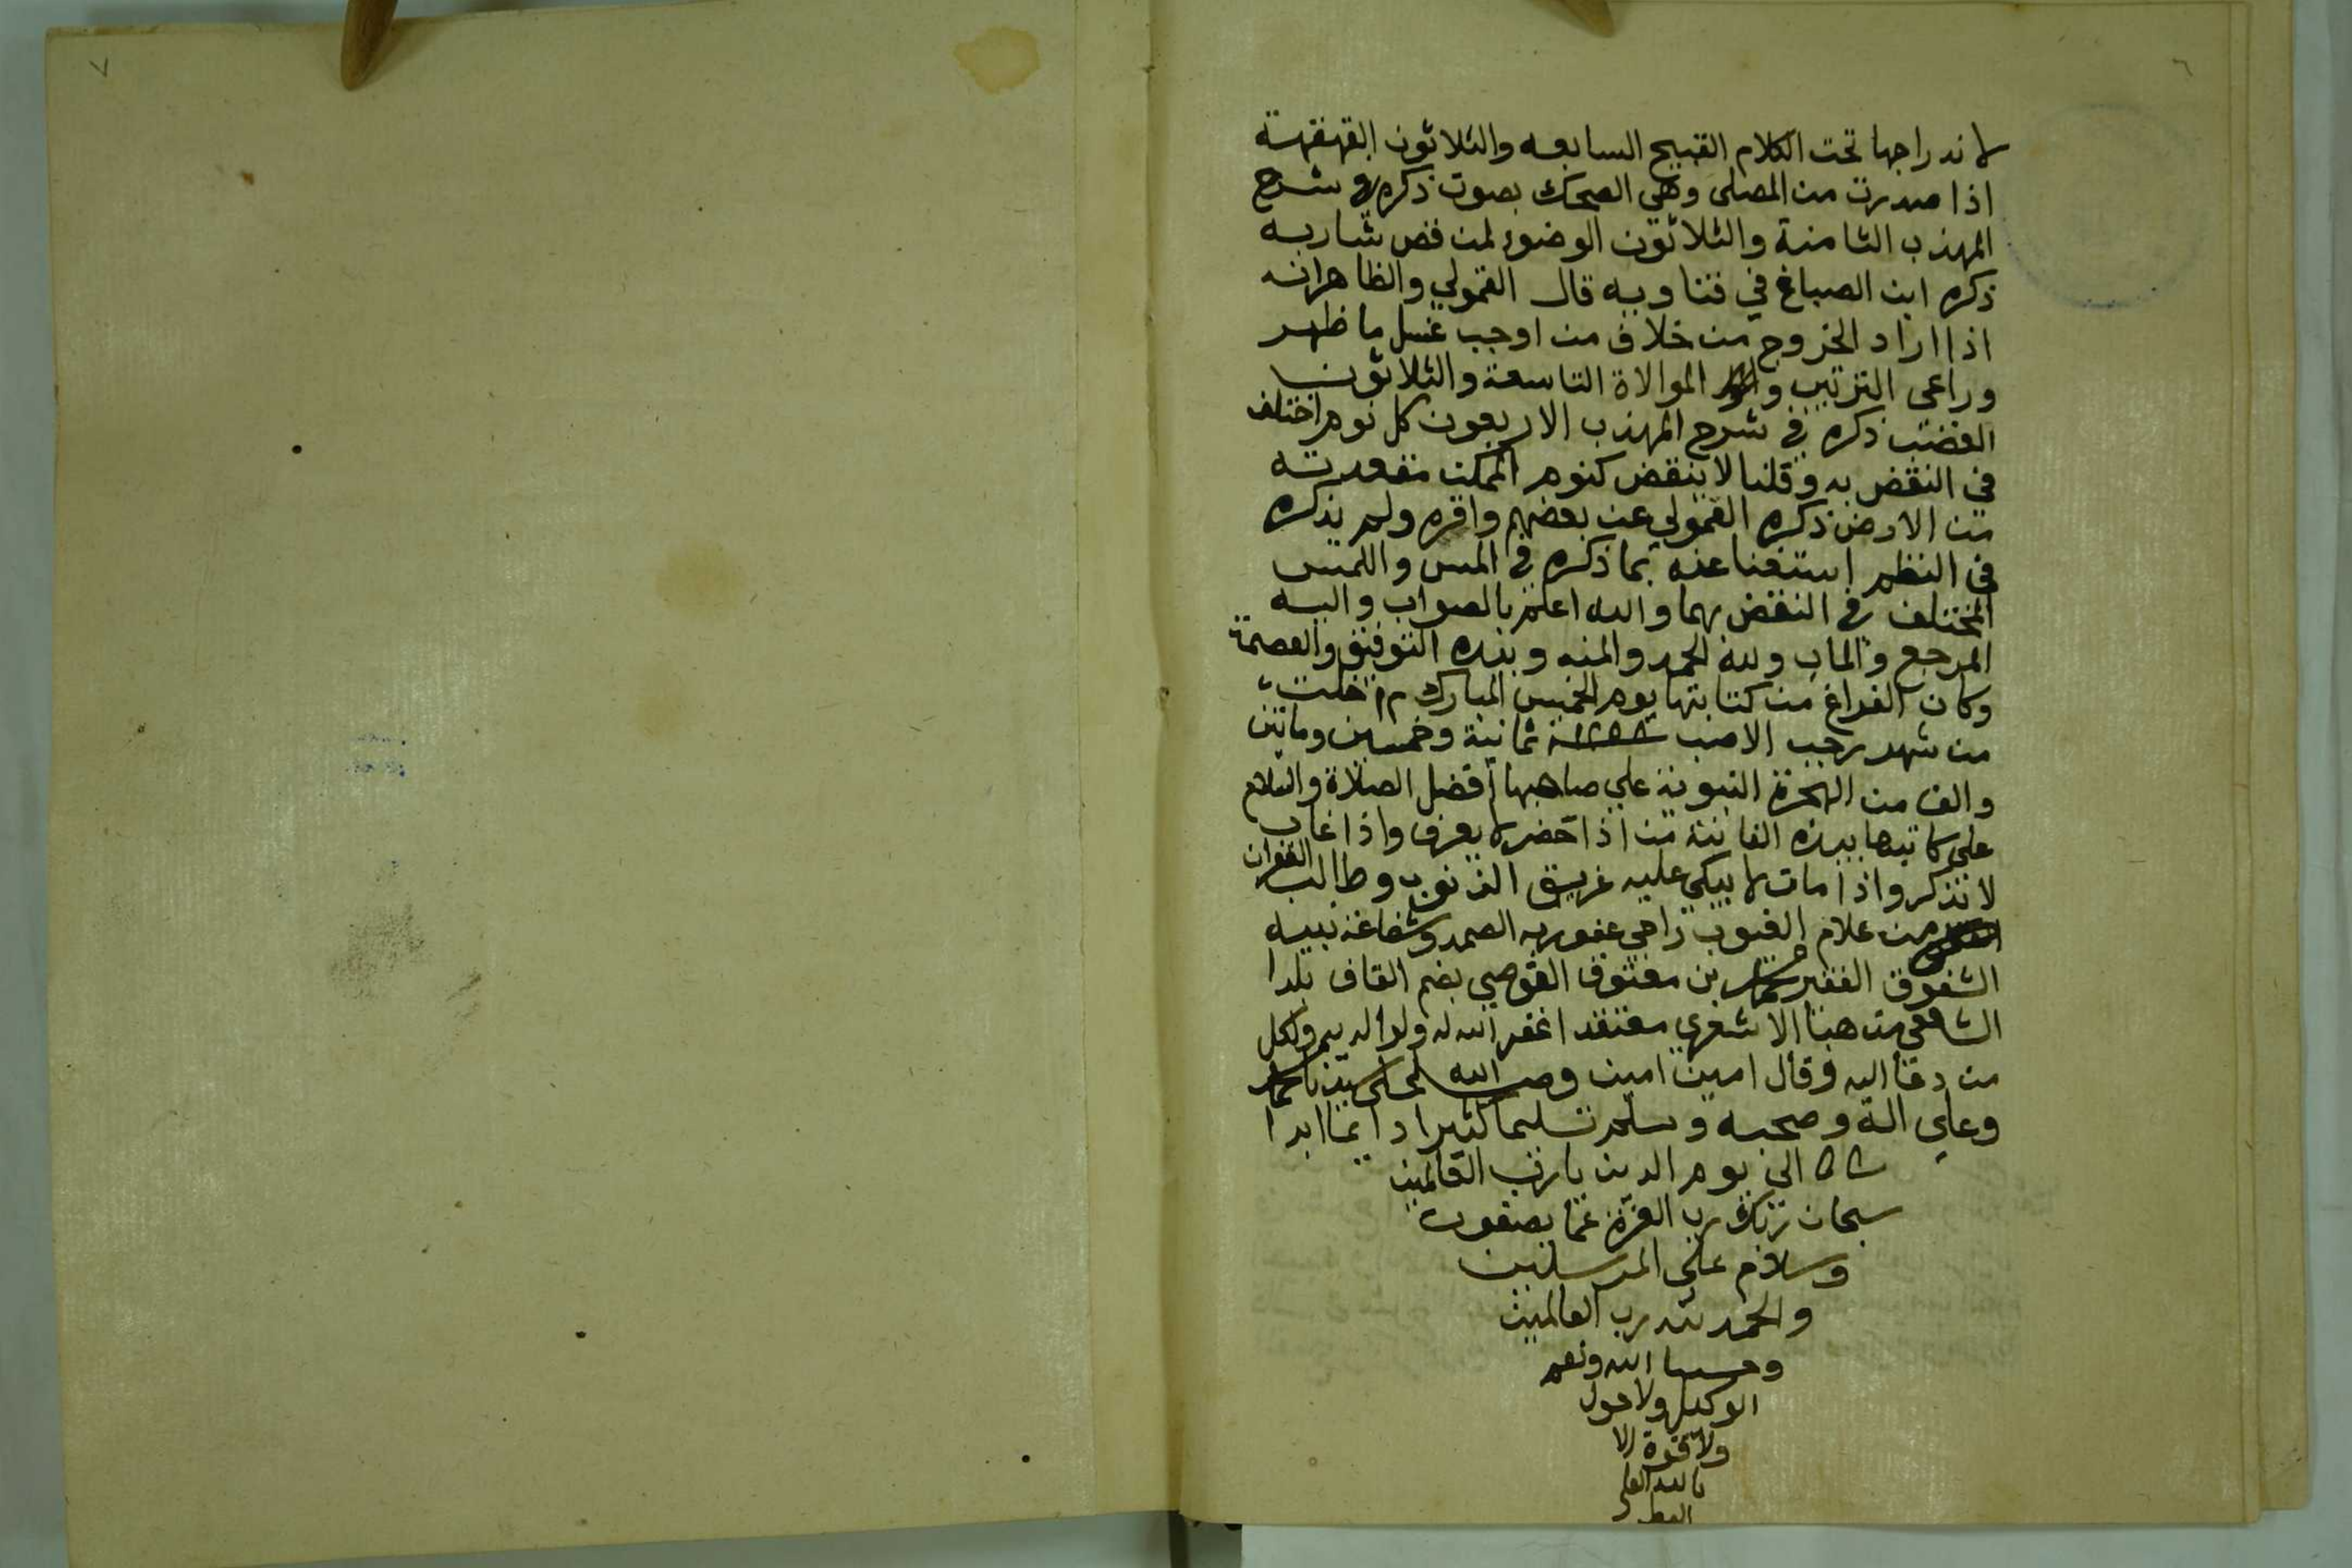 ٧
٦
لاندراجها تحت الكلام القبيح السابعه والثلاثون القهقهة
اذا صدرت من المصلى وهي الضحك بصوت ذكره في شرح
المهذب الثامنة والثلاثون الوضوء لمن قص شاربه
ذكره ابن الصباغ في فتاويه قال القمولي والظاهر انه
اذا اراد الخروج من خلاف من اوجب غسل ما ظهر
وراعى الترتيب والموالاة التاسعة والثلاثون
الغضب ذكره في شرح المهذب الاربعون كل نوم اختلف
في النقض به وقلنا لا ينقض كنوم الممكن مقعدته
من الارض ذكره القمولي عن بعضهم واقره ولم يذكره
في النظم استغنا عنه بما ذكره في المس واللمس
المختلف في النقض بهما والله اعلم بالصواب واليه
المرجع والماب ولله الحمد والمنه وبيده التوفيق والعصمة
وكان الفراغ من كتابتها يوم الخميس المبارك خلت
من شهر رجب الاصب سنة ثمانية وخمسين وماتين
والف من الهجرة النبوية على صاحبها افضل الصلاة والسلام
على كاتبها بيده الفانية من اذا حضر لا يعرف واذا غاب
لا يذكر واذا مات لا يبكي عليه غريق الذنوب وطالب الغفران
من علام الغيوب راجي عفو ربه الصمد وشفاعة نبيه
الشفوق الفقير محمد بن معتوق القوصي بضم القاف بلدا
الشافعي مذهبا الاشعري معتقدا غفر الله له ولوالديه ولكل
من دعا اليه وقال امين امين وصلى الله على سيدنا محمد
وعلى اله وصحبه وسلم تسليما كثيرا دايما ابدا
الى يوم الدين يارب العالمين
سبحان ربك رب العزة عما يصفون
وسلام على المرسلين
والحمد لله رب العالمين
وحسبنا الله ونعم
الوكيل ولا حول
ولا قوة الا
بالله العلي
العظيم